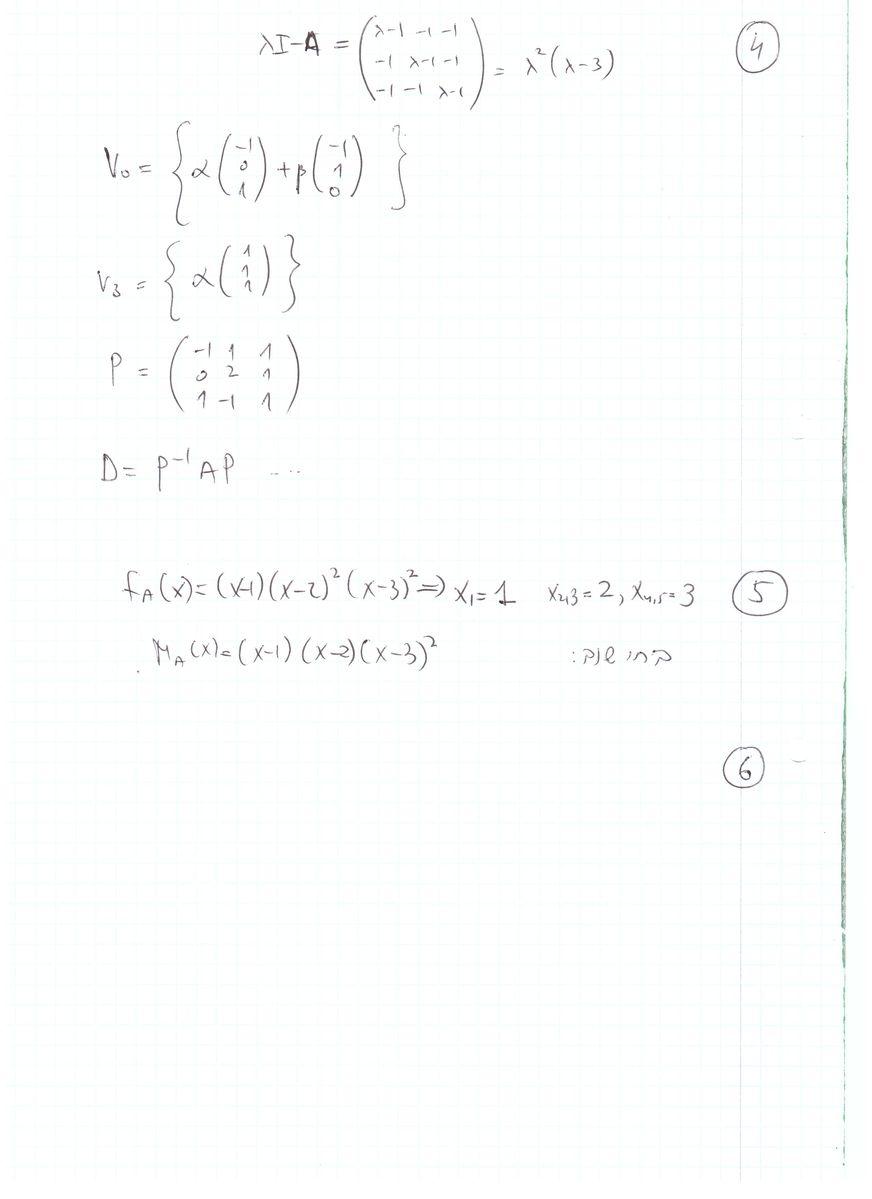 ④ λI-A = (λ-1 -1 -1
-1 λ-1 -1
-1 -1 λ-1) = λ²(λ-3)
V₀ = { α(-1 0 1) + β(-1 1 0) }
V₃ = { α(1 1 1) }
P = (-1 1 1
0 2 1
1 -1 1)
D = P⁻¹AP ...
⑤ f_A(x) = (x-1)(x-2)²(x-3)² ⇒ x₁ = 1 x₂,₃ = 2, x₄,₅ = 3
M_A(x) = (x-1)(x-2)(x-3)²
⑥